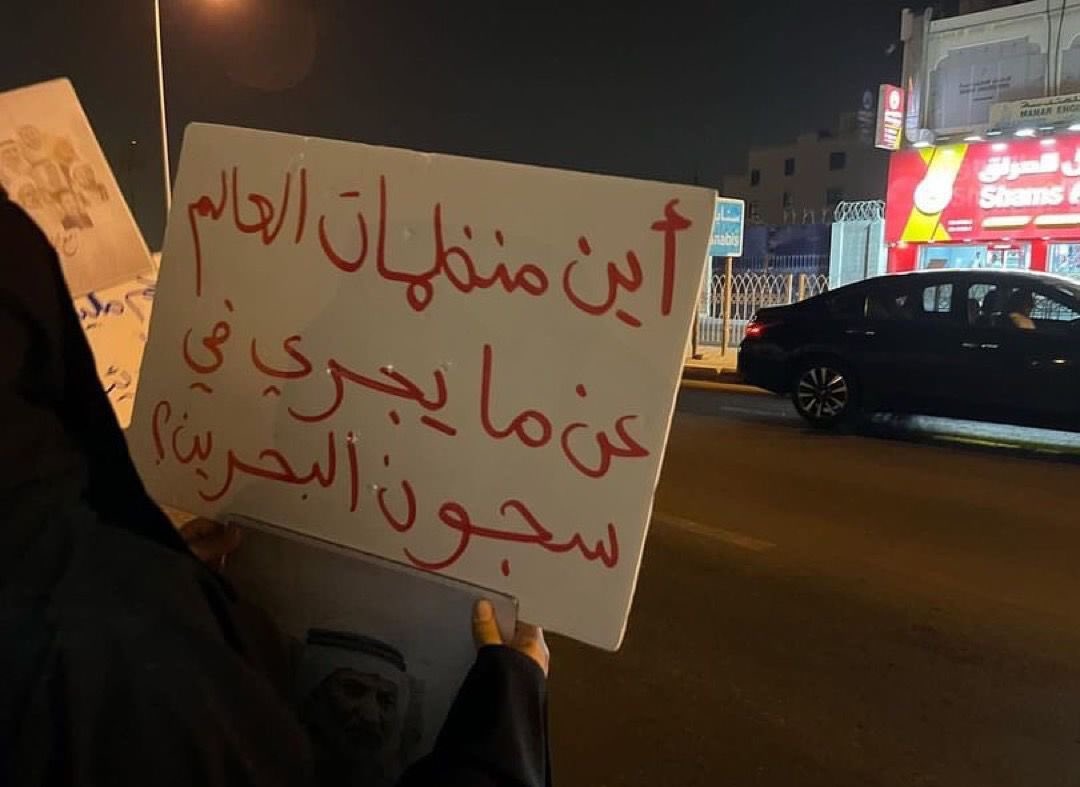 أين منظمات العالم
عن ما يجري في
سجون البحرين؟
سنابس
nabis
Shams
MAHAR ENG